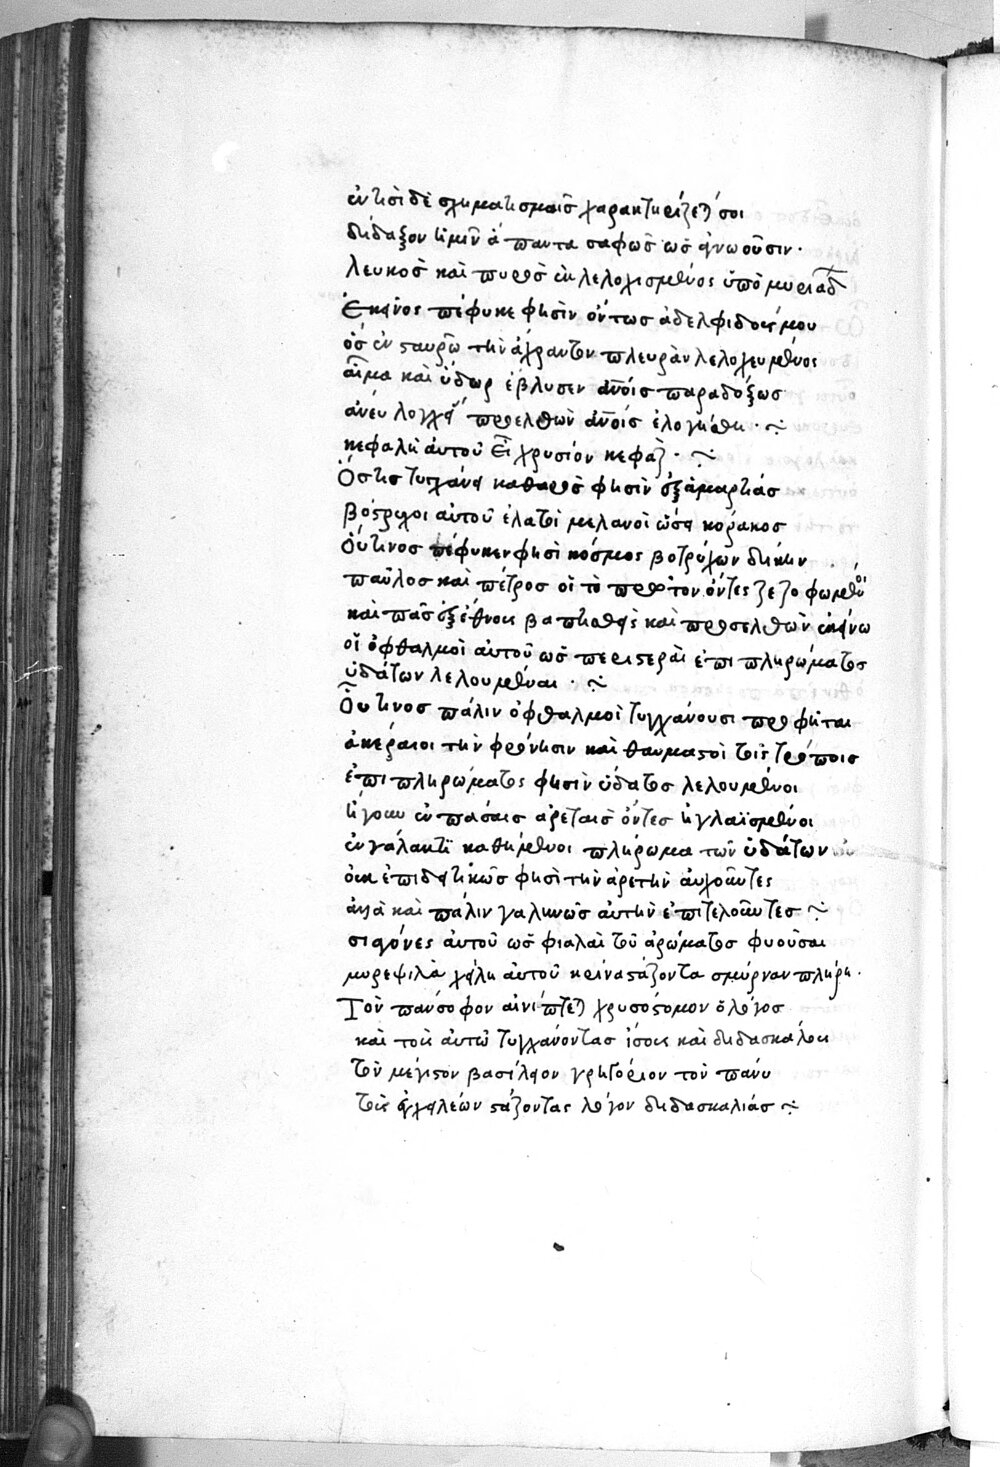 ἐν τισὶ δὲ σχηματισμοῖς χαρακτηρίζεταί σοι
δίδαξον ἡμῖν ἅπαντα σαφῶς ὡς ἀγνωοῦσιν·
λευκὸς καὶ πυρὸς ἐκλελογισμένος ὑπὸ μυριάδ
Ἐκεῖνος πέφυκε φησὶν ὄντως ἀδελφιδός μου
ὃς ἐν σταυρῷ τὴν ἄχραντον πλευρὰν λελογευμένος
αἷμα καὶ ὕδωρ ἔβλυσεν ἀνοις παραδόξως
ἄνευ λογχ προελθὼν ἀνοις ἐλογχώθη·
κεφαλὴ αὐτοῦ χρυσίον κεφαζ·
Ὅστις τυγχάνει καθαρὸς φησὶν ἐξ ἁμαρτίας
βόστρυχοι αὐτοῦ ἐλατοὶ μελανοὶ ὡσεὶ κόρακος
Οὗτινος πέφυκεν φησὶ κόσμος βοτρύχων δίκην
παῦλος καὶ πέτρος οἱ τὸ πρῶτον ὄντες ζεζοφωμένοι
καὶ πᾶς ἐξ ἔθνους βαπτισθεὶς καὶ προσελθὼν ἐκείνω
οἱ ὀφθαλμοὶ αὐτοῦ ὡς περιστεραὶ ἐπὶ πληρώματος
ὑδάτων λελουμέναι·
Οὗτινος πάλιν ὀφθαλμοὶ τυγχάνουσι προφῆται
ἀκέραιοι τὴν φρόνησιν καὶ θαυμαστοὶ τοῖς τρόποις
ἐπὶ πληρώματος φησὶν ὕδατος λελουμένοι
ἤγουν ἐν πάσαις ἀρεταῖς ὄντες ἠγλαϊσμένοι
ἐν γάλακτι καθήμενοι πλήρωμα τῶν ὑδάτων
οὐκ ἐπιδεικτικῶς φησὶ τὴν ἀρετὴν αὐχοῦντες
ἀλλὰ καὶ πάλιν γαληνῶς αὐτὴν ἐπιτελοῦντες
σιαγόνες αὐτοῦ ὡς φιάλαι τοῦ ἀρώματος φυοῦσαι
μυρεψικὰ χείλη αὐτοῦ κρίνα στάζοντα σμύρναν πλήρη·
Τὸν πάνσοφον αἰνίττεται χρυσόστομον ὁ λόγος
καὶ τοὺς αὐτῷ τυγχάνοντας ἴσους καὶ διδασκάλους
τὸν μέγιστον βασίλειον γρηγόριον τὸν πάνυ
τοὺς ἐκ χειλέων στάζοντας λόγον διδασκαλίας